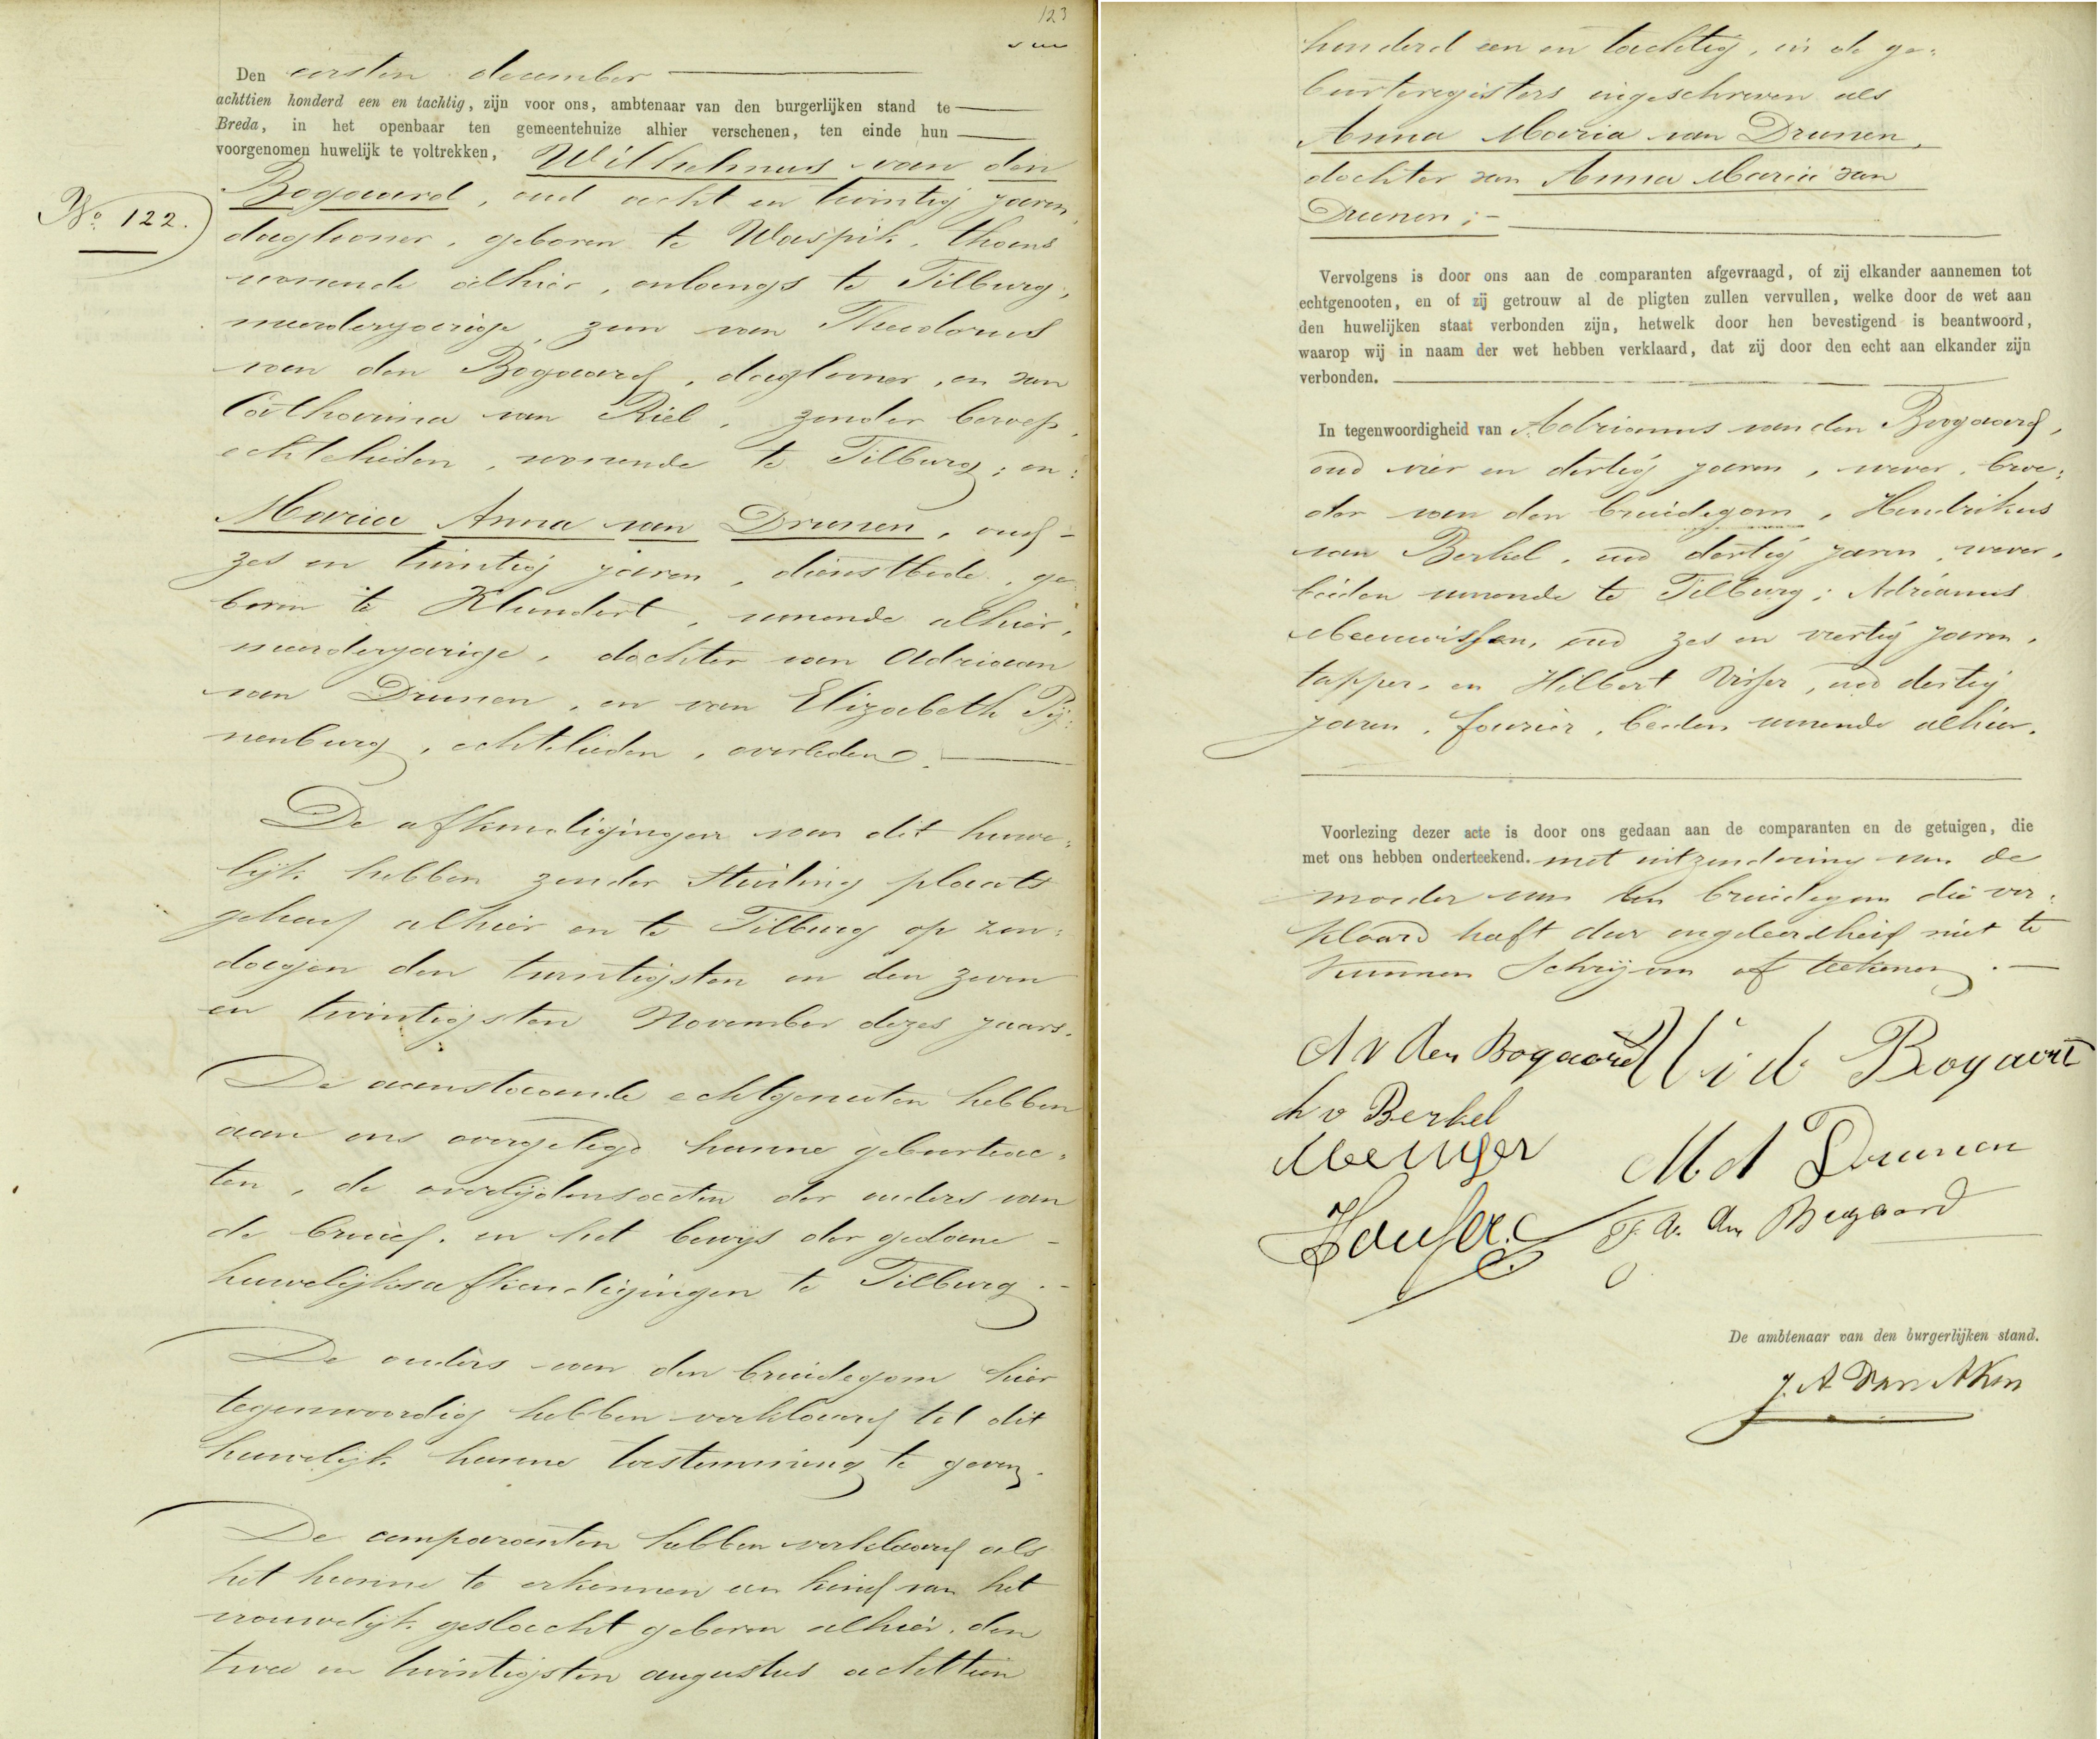 123
Den eersten december
achttien honderd een en tachtig, zijn voor ons, ambtenaar van den burgerlijken stand te
Breda, in het openbaar ten gemeentehuize alhier verschenen, ten einde hun
voorgenomen huwelijk te voltrekken, Wilhelmus van den
Bogaard, oud acht en twintig jaren,
No. 122.
daglooner, geboren te Waspik, thans
wonende alhier, onlangs te Tilburg,
meerderjarige, zoon van Theodorus
van den Bogaard, daglooner, en van
Catharina van Riel, zonder beroep,
echtelieden, wonende te Tilburg; en:
Maria Anna van Drunen, oud
zes en twintig jaren, dienstbode, ge-
boren te Klundert, wonende alhier,
meerderjarige, dochter van Adriaan
van Drunen, en van Elizabeth Pij:
nenburg, echtelieden, overleden.
De afkondigingen van dit huwe:
lijk hebben zonder stuiting plaats
gehad alhier en te Tilburg op zon:
dagen den twintigsten en den zeven
en twintigsten November dezes jaars.
De aanstaande echtgenooten hebben
aan ons overgelegd hunne geboorteac:
ten, de overlijdensacten der ouders van
de bruid, en het bewijs der gedane
huwelijksafkondigingen te Tilburg.
De ouders van den bruidegom hier
tegenwoordig hebben verklaard tot dit
huwelijk hunne toestemming te geven.
De comparanten hebben verklaard als
het hunne te erkennen een kind van het
vrouwelijk geslacht geboren alhier, den
twee en twintigsten augustus achttien
honderd een en tachtig, in de ge:
boorteregisters ingeschreven als
Anna Maria van Drunen,
dochter van Anna Maria van
Drunen;
Vervolgens is door ons aan de comparanten afgevraagd, of zij elkander aannemen tot
echtgenooten, en of zij getrouw al de pligten zullen vervullen, welke door de wet aan
den huwelijken staat verbonden zijn, hetwelk door hen bevestigend is beantwoord,
waarop wij in naam der wet hebben verklaard, dat zij door den echt aan elkander zijn
verbonden.
In tegenwoordigheid van Adrianus van den Bogaard,
oud vier en dertig jaren, wever, broe:
der van den bruidegom, Hendrikus
van Berkel, oud dertig jaren, wever,
beiden wonende te Tilburg; Adrianus
Meeuwissen, oud zes en veertig jaren,
tapper, en Hilbert Visser, oud dertig
jaren, fourier, beiden wonende alhier.
Voorlezing dezer acte is door ons gedaan aan de comparanten en de getuigen, die
met ons hebben onderteekend. met uitzondering van de
moeder van den bruidegom die ver:
klaard heeft door ongeleerdheid niet te
kunnen schrijven of teekenen.
A v den Bogaard W v d Bogaart
h v Berkel
M A Drunen
T. v. den Bogaard
De ambtenaar van den burgerlijken stand.
J. A van Aken